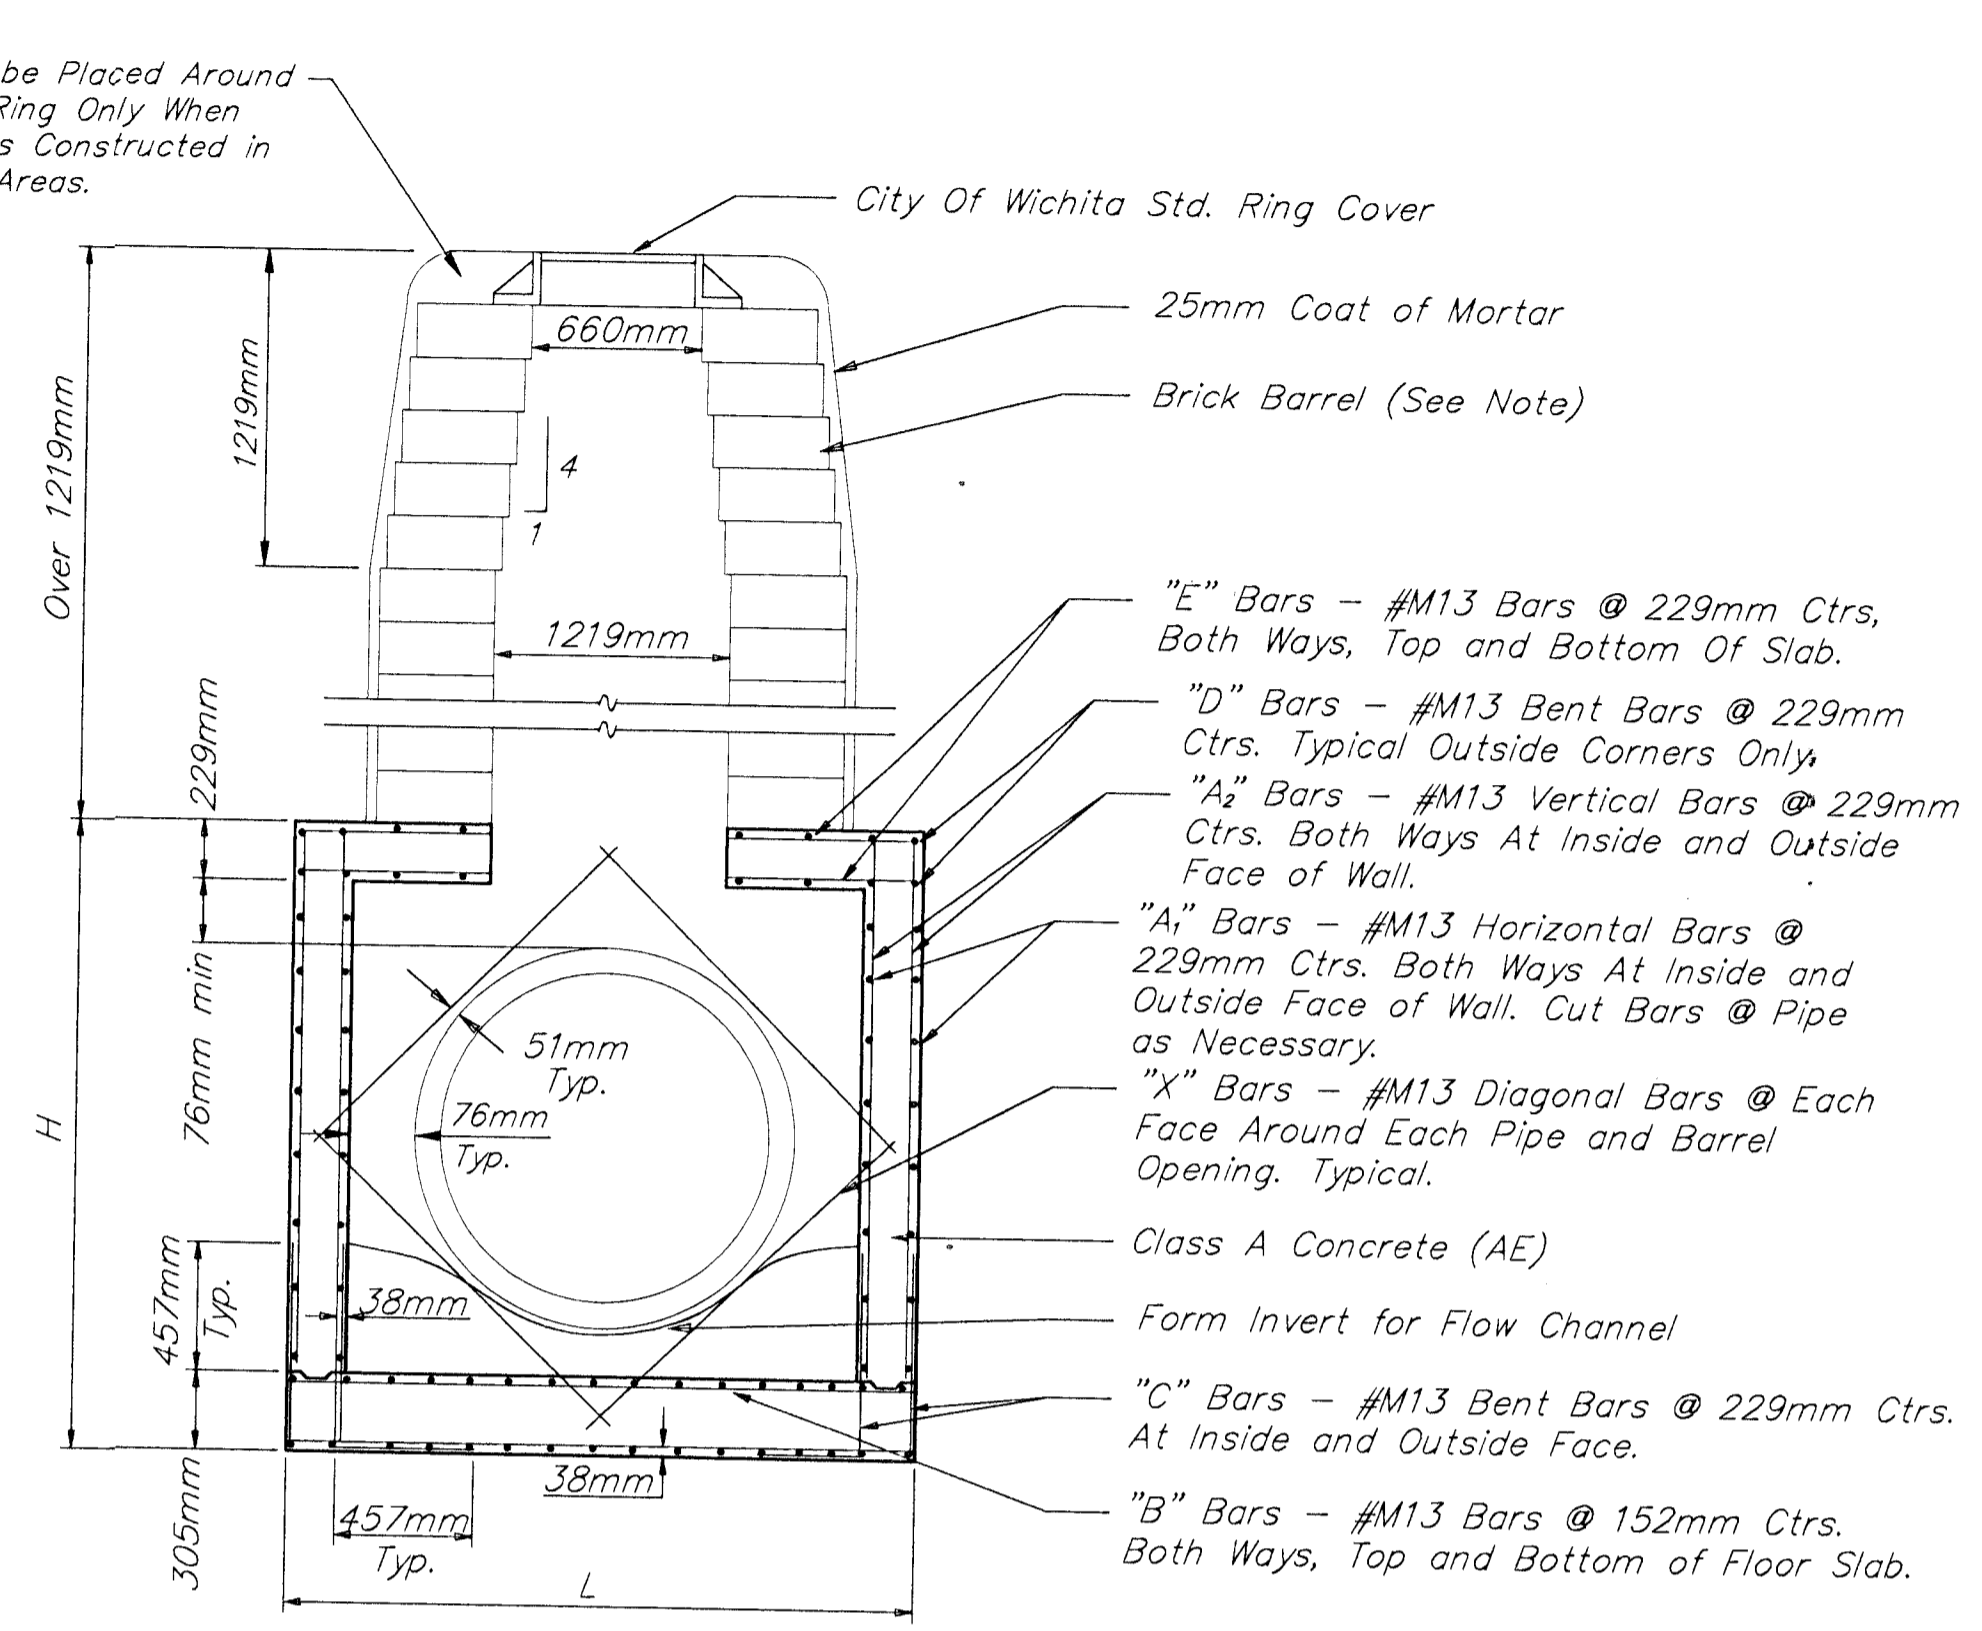 be Placed Around
Ring Only When
s Constructed in
Areas.
City Of Wichita Std. Ring Cover
25mm Coat of Mortar
660mm
Brick Barrel (See Note)
Over 1219mm
1219mm
4
1
1219mm
"E" Bars – #M13 Bars @ 229mm Ctrs,
Both Ways, Top and Bottom Of Slab.
"D" Bars – #M13 Bent Bars @ 229mm
Ctrs. Typical Outside Corners Only.
"A2" Bars – #M13 Vertical Bars @ 229mm
Ctrs. Both Ways At Inside and Outside
Face of Wall.
"A1" Bars – #M13 Horizontal Bars @
229mm Ctrs. Both Ways At Inside and
Outside Face of Wall. Cut Bars @ Pipe
as Necessary.
"X" Bars – #M13 Diagonal Bars @ Each
Face Around Each Pipe and Barrel
Opening. Typical.
Class A Concrete (AE)
Form Invert for Flow Channel
"C" Bars – #M13 Bent Bars @ 229mm Ctrs.
At Inside and Outside Face.
"B" Bars – #M13 Bars @ 152mm Ctrs.
Both Ways, Top and Bottom of Floor Slab.
229mm
76mm min
H
51mm
Typ.
76mm
Typ.
457mm
Typ.
38mm
305mm
38mm
457mm
Typ.
L